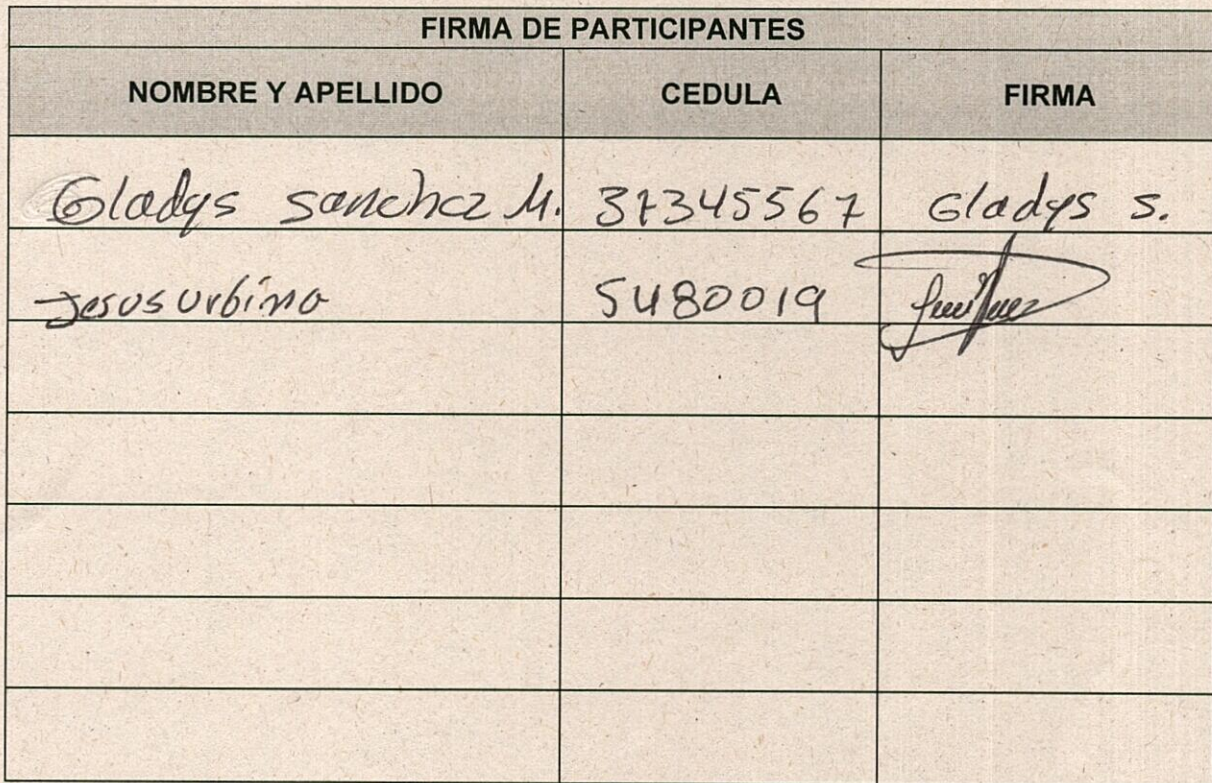 FIRMA DE PARTICIPANTES
NOMBRE Y APELLIDO CEDULA FIRMA
Gladys sanchez M. 37345567 Gladys S.
Jesus Urbino 5480019